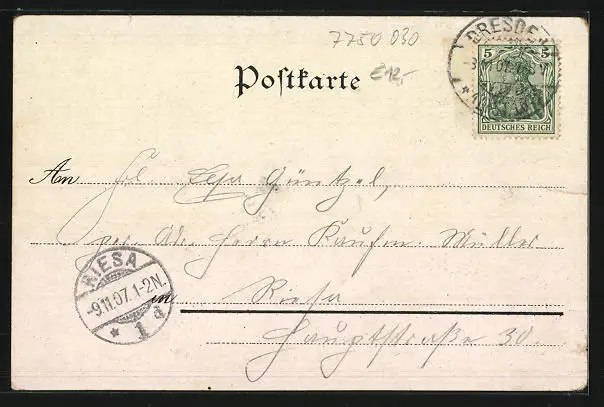 7750 030
DRESDEN
5 5
Postkarte
€12,-
DEUTSCHES REICH
An Frl. Güntzel,
per Ad. Herrn Kaufm. Müller
RIESA
-9.11.07.1-2N.
* 1 d
in Riesa
Hauptstraße 30.